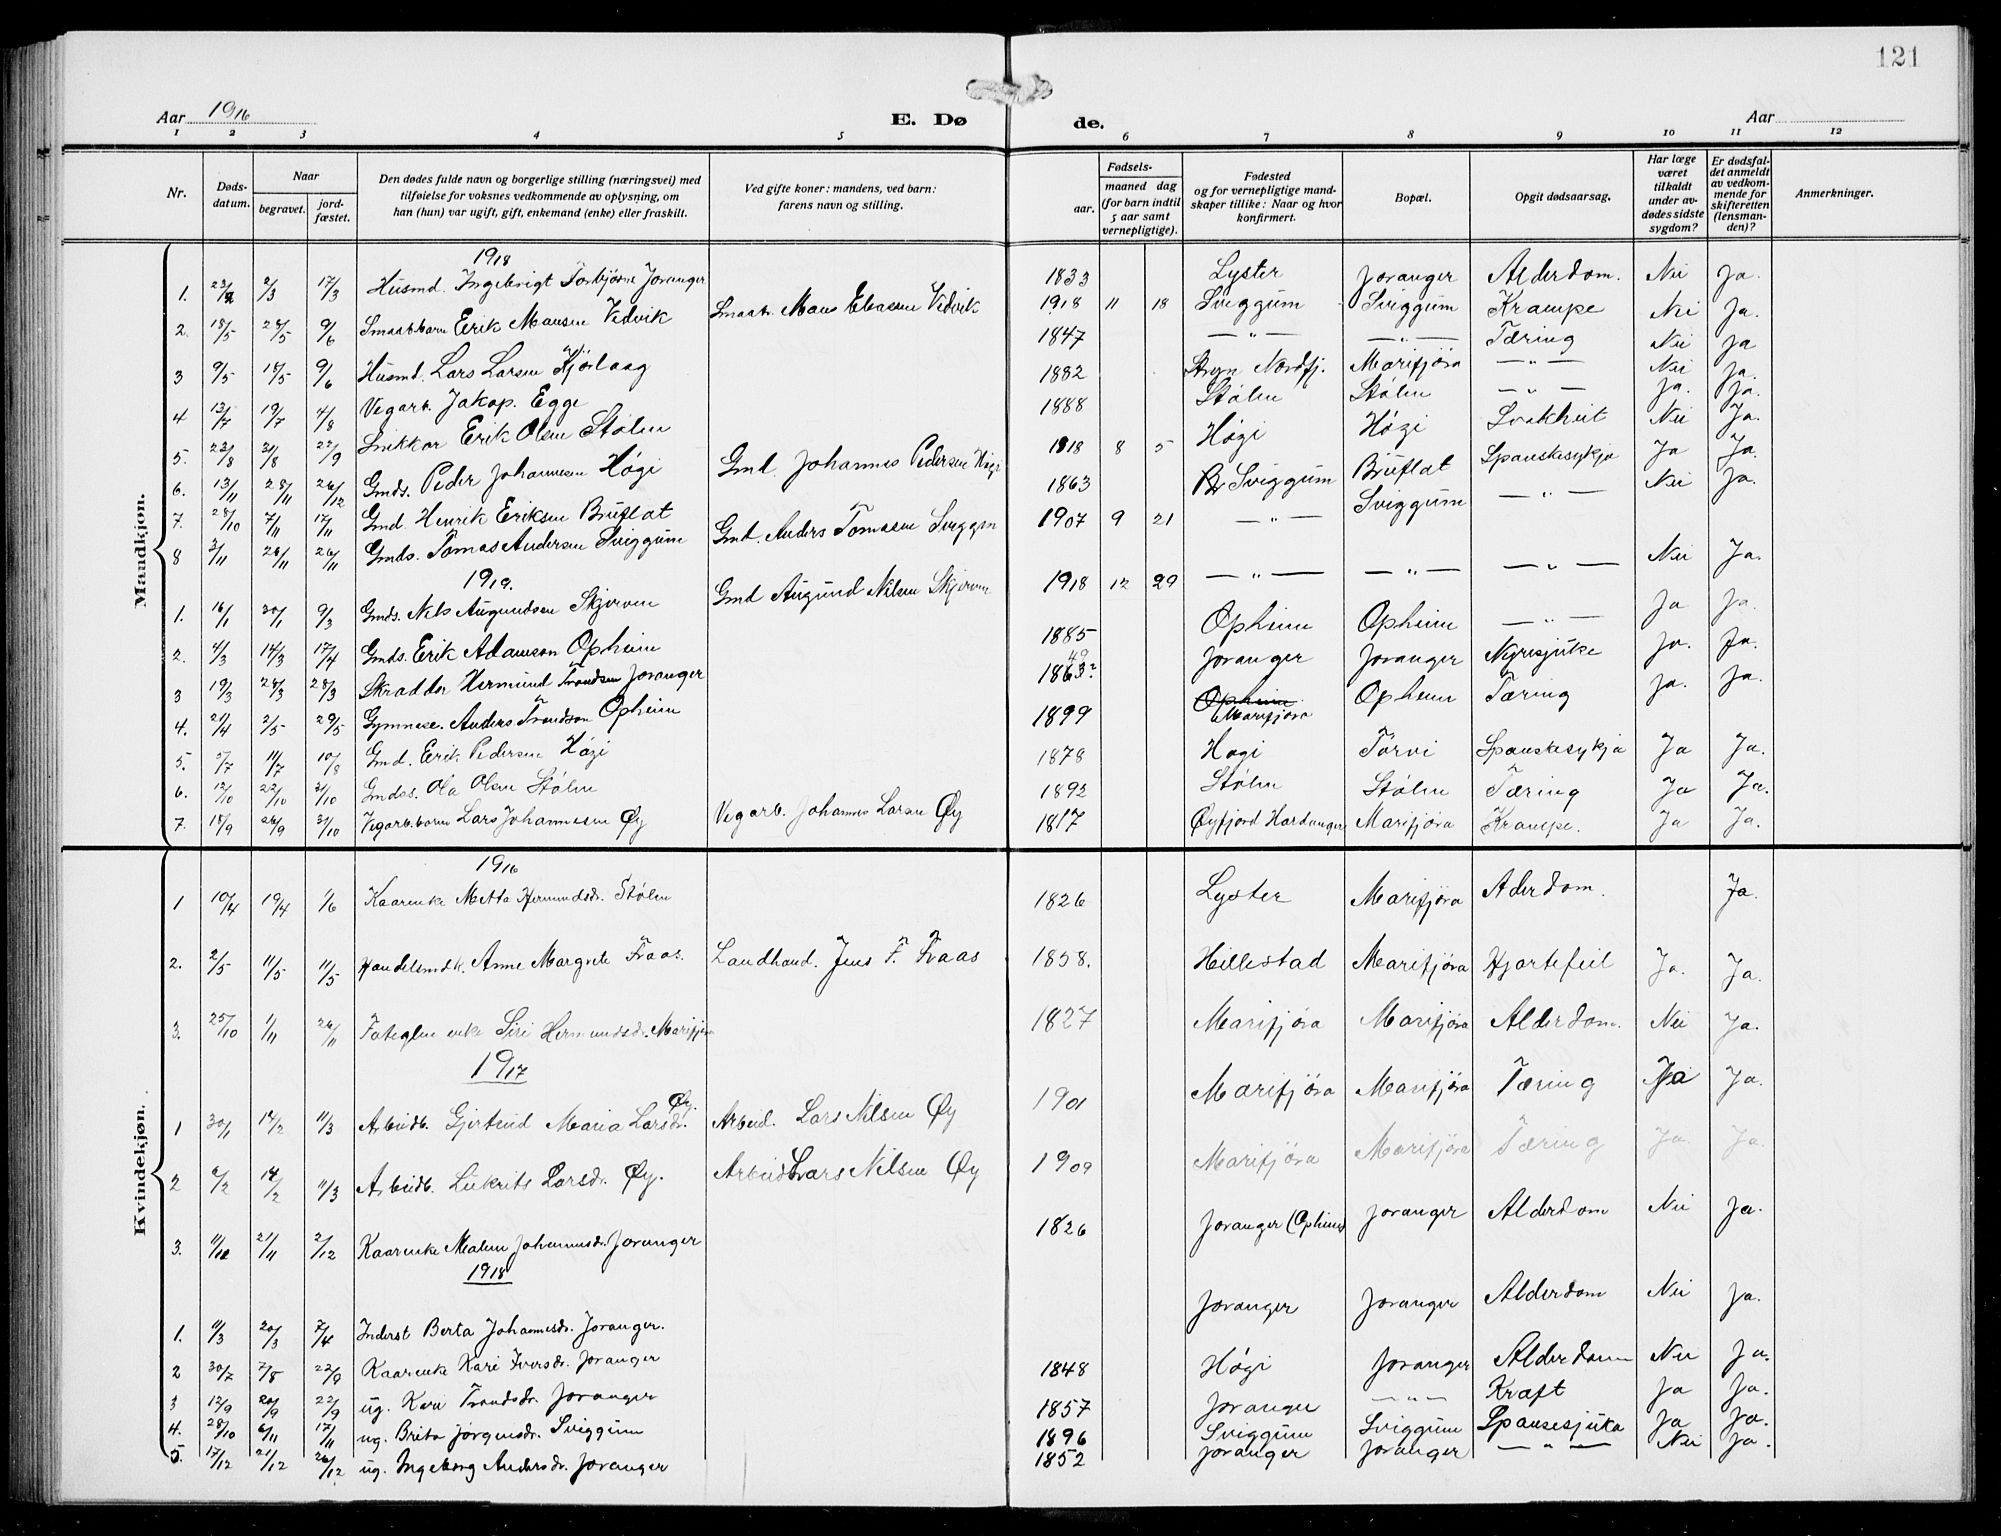 121
Aar 1916
E. Dø
de.
Aar
1 2 3 4 5 6 7 8 9 10 11 12
Nr.
Døds-
datum.
Naar
begravet.
jord-
fæstet.
Den dødes fulde navn og borgerlige stilling (næringsvei) med
tilføielse for voksnes vedkommende av oplysning, om
han (hun) var ugift, gift, enkemand (enke) eller fraskilt.
Ved gifte koner: mandens, ved barn:
farens navn og stilling.
Fødsels-
aar.
maaned dag
(for barn indtil
5 aar samt
vernepligtige).
Fødested
og for vernepligtige mand-
skaper tillike: Naar og hvor
konfirmert.
Bopæl.
Opgit dødsaarsag.
Har læge
været
tilkaldt
under av-
dødes sidste
sygdom?
Er dødsfal-
det anmeldt
av vedkom-
mende for
skifteretten
(lensman-
den)?
Anmerkninger.
Mandkjøn.
1918
1. 23/2 2/3 17/3 Husmd. Ingebrigt Torbjørns Joranger 1833 Lyster Joranger Alderdom. Nei Ja.
2. 18/5 28/5 9/6 Smaabbarn Erik Monsen Vedvik Smaab. Mons Eliassen Vedvik 1918 11 18 Sviggum Sviggum Krampe Nei Ja.
3 9/5 18/5 9/6 Husmd. Lars Larsen Kjørlaug 1847 — " — — " — Tæring Nei Ja
4 13/7 19/7 4/8 Vegarb. Jakop. Egge 1882 Stryn Nordfj. Marifjøra — " — Nei Ja.
5. 23/8 31/8 22/9 Snikkar Erik Olsen Stølen 1888 Stølen Stølen — " — Ja. Ja.
6. 13/11 28/11 26/12 Gmds. Peder Johannesen Høgi Gmd. Johannes Pedersen Høgi 1918 8 5 Høgi Høgi Svakheit Nei Ja.
7. 28/10 7/11 17/11 Gmd. Henrik Eriksen Bruflat 1863 Sviggum Bruflat Spanskesykja Ja Ja.
8 3/11 26/11 26/11 Gmds. Tomas Andersen Sviggum Gmd. Anders Tomassen Sviggum 1907 9 21 — " — Sviggum — " — Nei Ja.
1919.
1. 16/1 30/1 9/3 Gmds. Nels Augundsen Skjerven Gmd Augund Nilsen Skjerven 1918 12 29 — " — — " — — " — Nei Ja.
2. 4/3 14/3 17/4 Gmds. Erik Adamson Opheim 1885 Opheim Opheim — " — Ja Ja.
3 19/3 28/3 28/3 Skradder Hermund Trondsen Joranger 1863? 49 Joranger Joranger Nyrisjuke Ja. Ja.
4. 21/4 2/5 29/5 Gymnese. Anders Trondson Opheim 1899 Opheim Marifjøra Opheim Tæring Ja. Ja.
5. 5/7 11/7 10/8 Gmd. Erik Pedersen Høgi 1878 Høgi Tørvi Spanskesykja Ja Ja.
6. 12/10 22/10 31/10 Gmdss. Ola Olsen Stølen 1892 Stølen Stølen Tæring Ja Ja.
7. 18/9 26/9 31/10 Vegarb.barn Lars Johannesen Øy Vegarb. Johannes Larsen Øy 1817 Øyfjord Hardanger Marifjøra Krampe. Ja Ja.
Kvindekjøn.
1916
1 10/4 19/4 1/6 Kaarenke Metta Hermundsdr. Stølen 1826 Lyster Marifjøra Aderdom. Ja.
2. 2/5 11/5 11/5 Handelsmdk. Anne Margrete Fraas. Landhand. Jens F. Fraas 1858. Hillestad Marifjøra Hjartefeil Ja. Ja.
3. 25/10 1/11 26/11 Fateglm enke Siri Hermundsdr. Marifjøra 1827 Marifjøra Marifjøra Alderdom. Nei Ja.
1917
1 30/1 14/2 11/3 Arbeidb. Gjertrud Maria Larsdr. Øy. Arbeid. Lars Nilsen Øy 1901 Marifjøra Marifjøra Tæring Ja Ja.
2 6/2 14/2 11/3 Arbeidb. Lukrits Larsdr. Øy. Arbeid. Lars Nilsen Øy 1909 Marifjøra Marifjøra Tæring Ja. Ja.
3. 21/11 2/12 Kaarenke Malene Johannesdr. Joranger 1826 Joranger (Opheim) Joranger Alderdom Nei Ja.
1918
1. 11/3 20/3 7/4 Inderst Berta Johannesdr. Joranger. Joranger Joranger Alderdom Nei Ja.
2 30/7 7/8 22/9 Kaarenke Kari Iversdr. Joranger 1848 Høgi Joranger Alderdom Nei Ja.
3 12/9 20/9 22/9 ug. Kari Trondsdr. Joranger 1857 Joranger — " — Kræft Ja Ja.
4. 28/10 6/11 17/11 ug. Brita Jørgensdr. Sviggum 1896 Sviggum Sviggum Spansesjuka Ja Ja.
5. 17/12 21/12 26/12 ug. Ingeborg Andersdr. Joranger 1852 Joranger Joranger — " — Nei Ja.